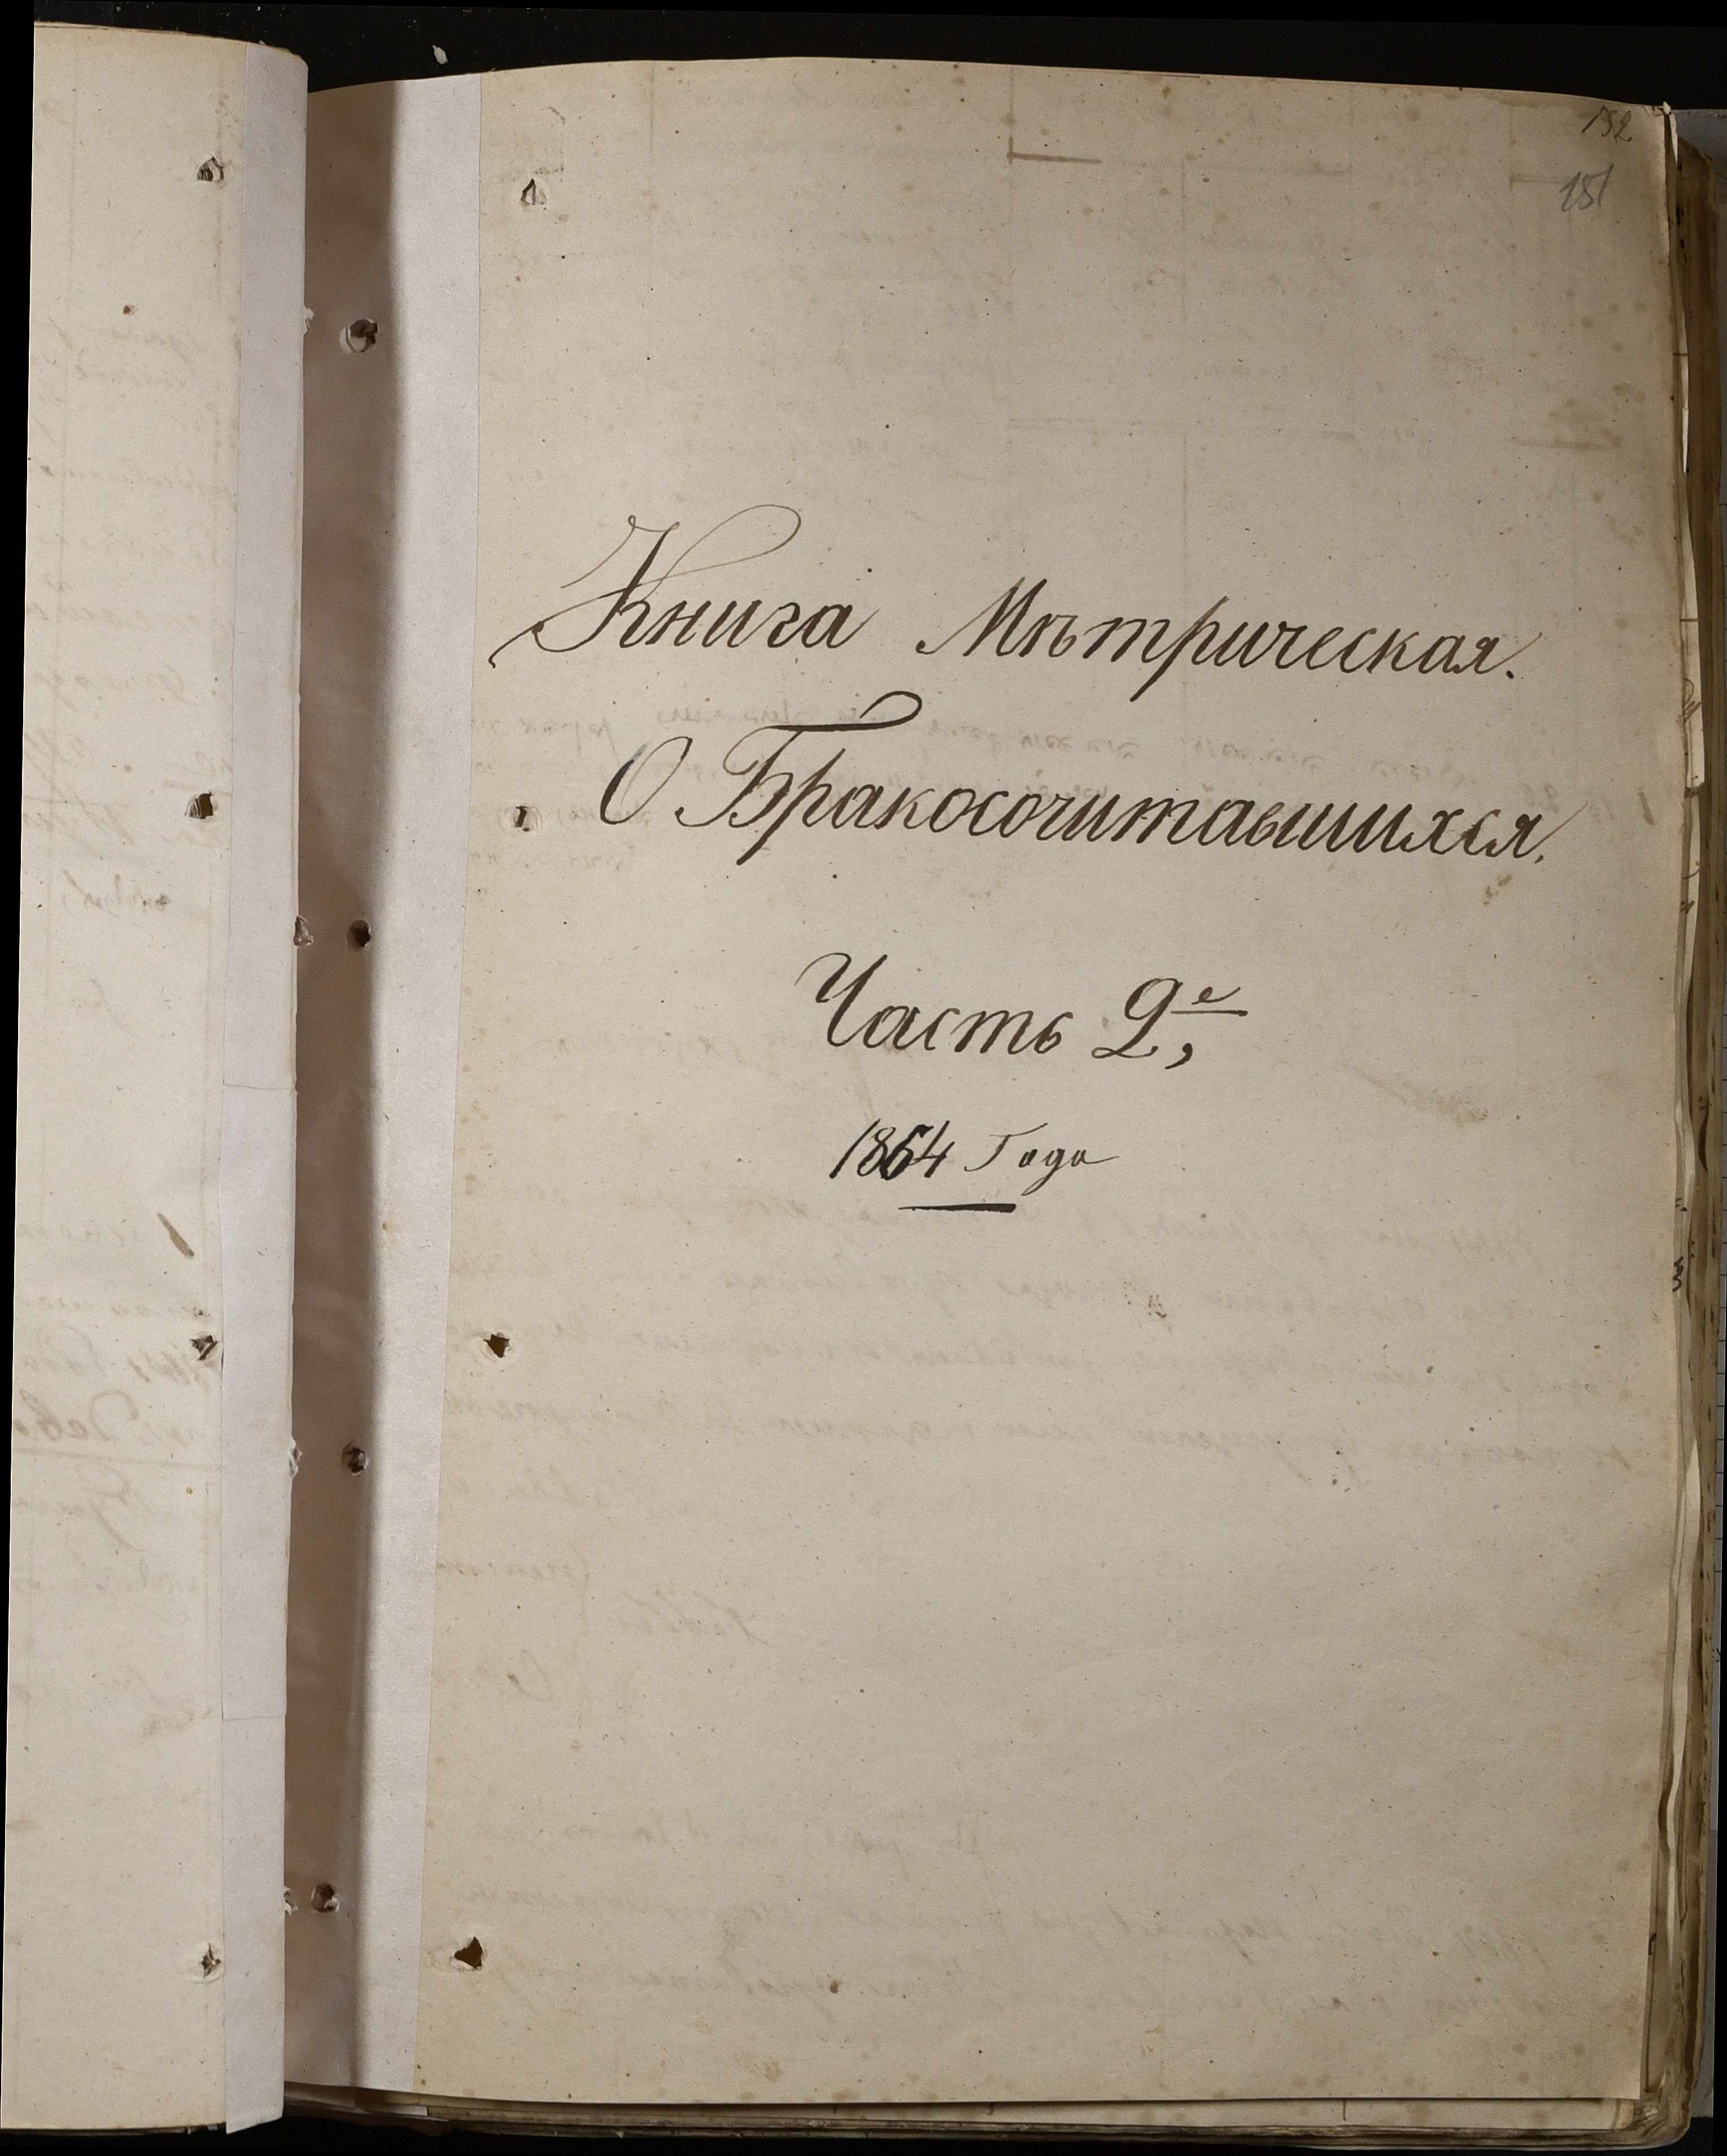 152
151
Книга Мѣтрическая.
О Бракосочитавшихся.
Часть 2,е
1864 Года